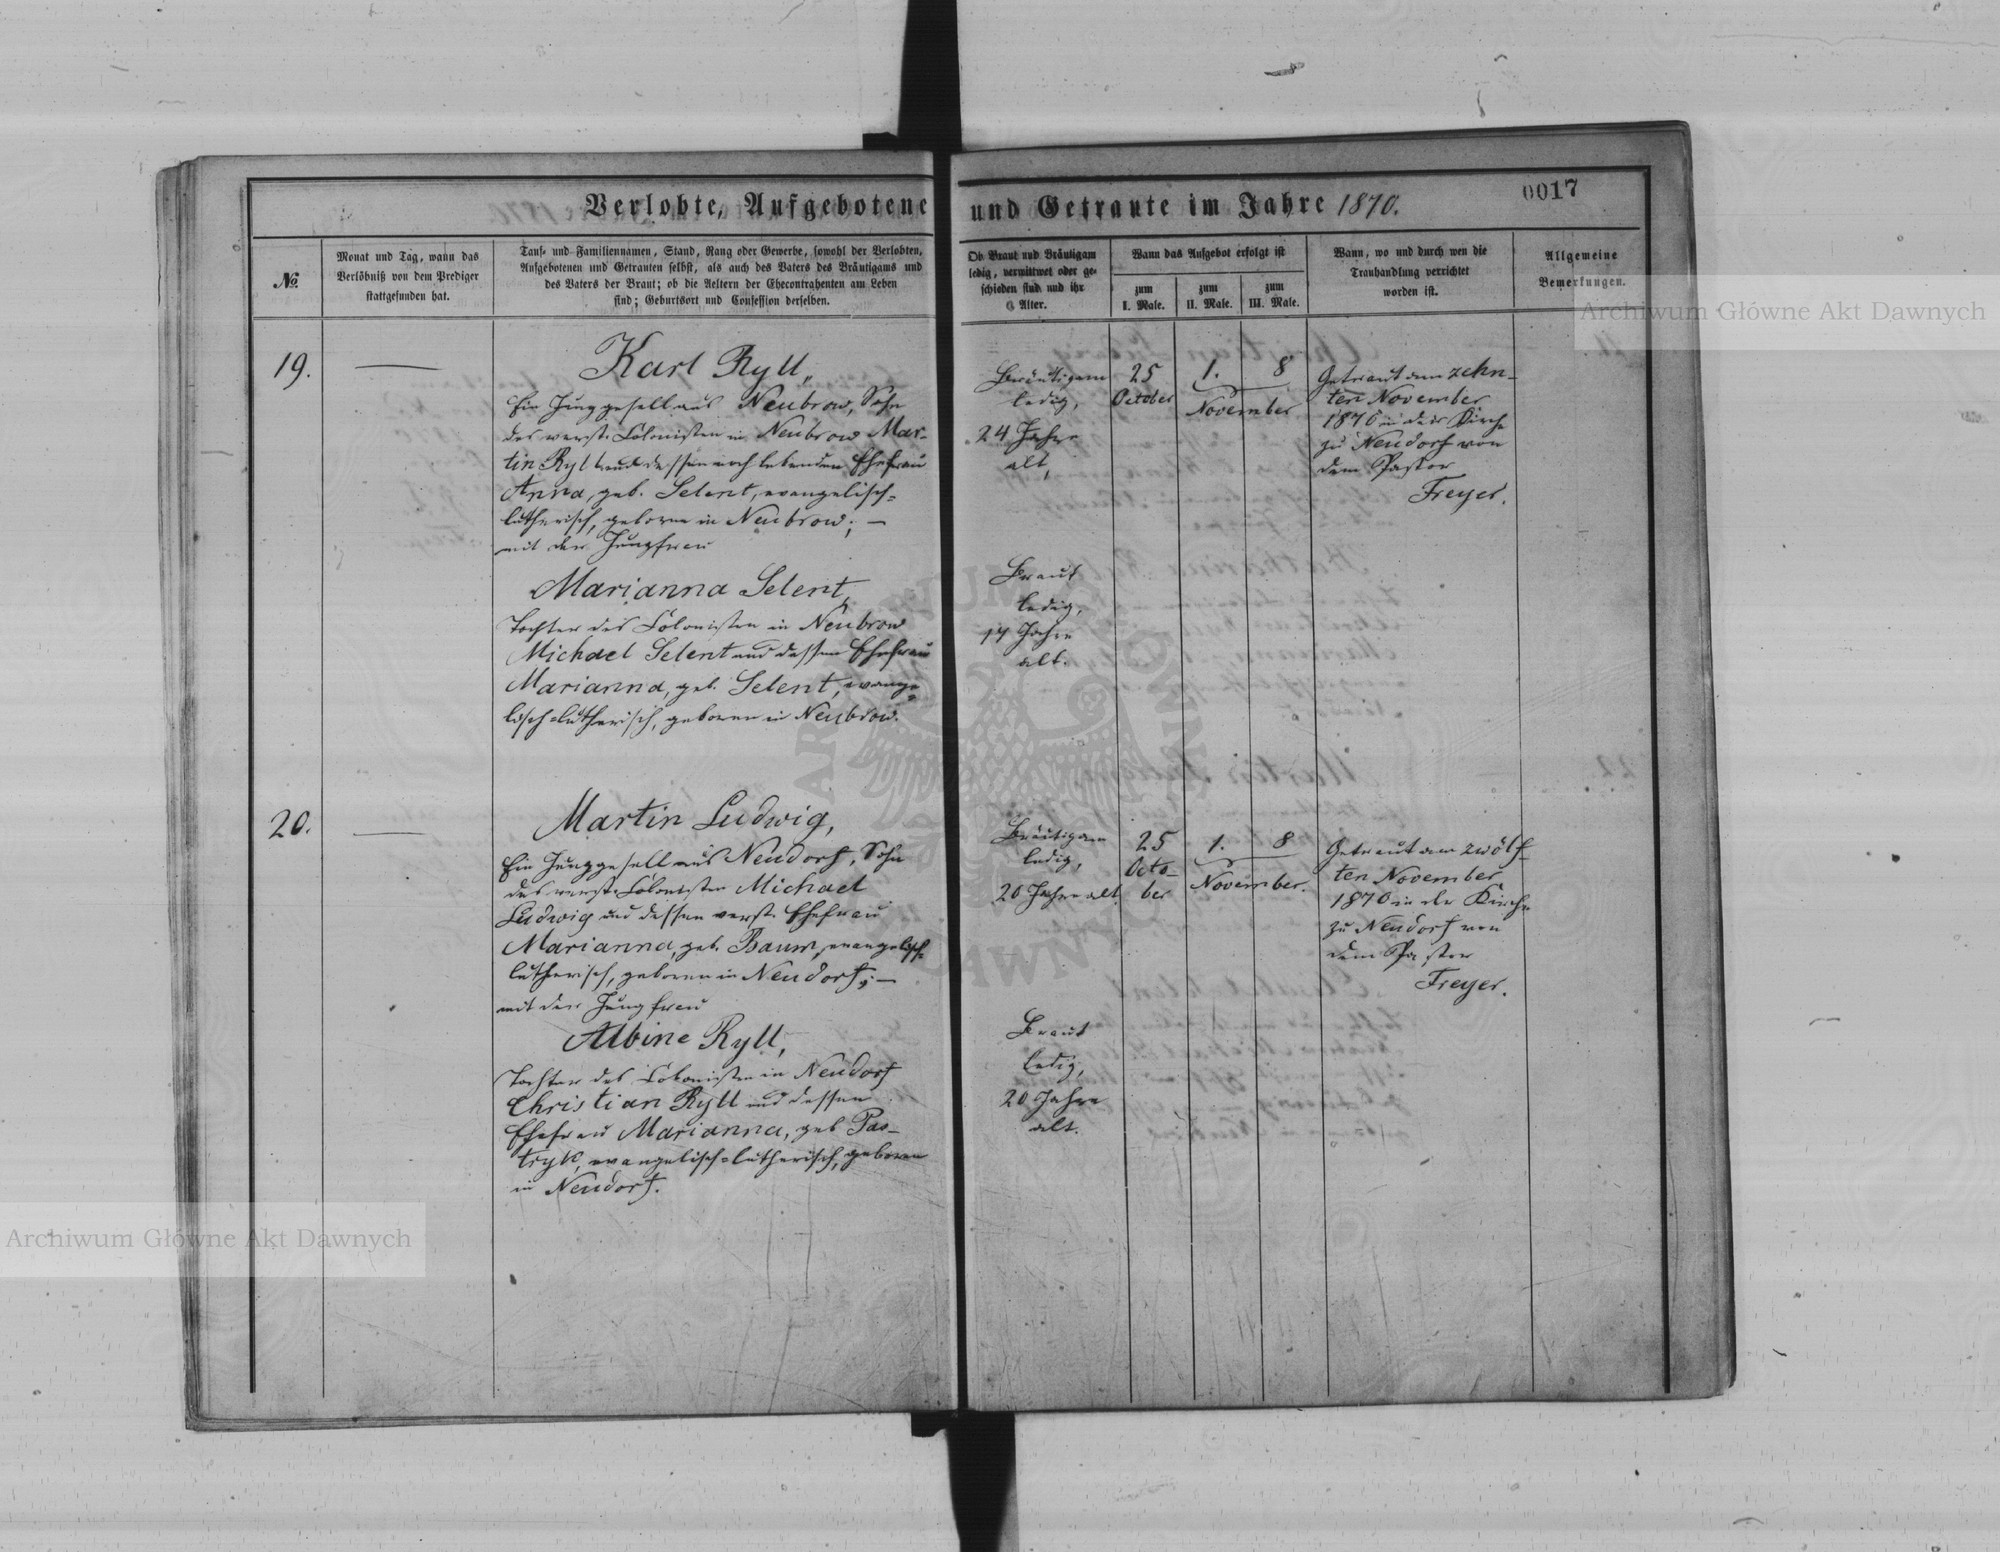 Verlobte, Aufgebotene und Getraute im Jahre 1870.
0017
№
Monat und Tag, wann das
Verlöbniß von dem Prediger
stattgefunden hat.
Tauf- und Familiennamen, Stand, Rang oder Gewerbe, sowohl der Verlobten,
Aufgebotenen und Getrauten selbst, als auch des Vaters des Bräutigams und
des Vaters der Braut; ob die Aeltern der Ehecontrahenten am Leben
sind; Geburtsort und Confession derselben.
Ob Braut und Bräutigam
ledig, verwittwet oder ge-
schieden sind und ihr
Alter.
Wann das Aufgebot erfolgt ist
zum
I. Male.
zum
II. Male.
zum
III. Male.
Wann, wo und durch wen die
Trauhandlung verrichtet
worden ist.
Allgemeine
Bemerkungen.
19.
Karl Ryll,
Ein Junggesell aus Neubrow, Sohn
des verst. Colonisten in Neubrow Mar-
tin Ryll und dessen noch lebenden Ehefrau
Anna, geb. Selent, evangelisch-
lutherisch, geboren in Neubrow; —
mit der Jungfrau
Marianna Selent,
Tochter des Colonisten in Neubrow
Michael Selent und dessen Ehefrau
Marianna, geb. Selent, evange-
lisch-lutherisch, geboren in Neubrow.
Bräutigam
ledig,
24 Jahre
alt,
Braut
ledig,
17 Jahre
alt.
25
October
1. 8
November
Getraut am zehn-
ten November
1870 in der Kirche
zu Neudorf von
dem Pastor
Freyer.
20.
Martin Ludwig,
Ein Junggesell aus Neudorf, Sohn
des verst. Colonisten Michael
Ludwig und dessen verst. Ehefrau
Marianna, geb. Baum, evangelisch-
lutherisch, geboren in Neudorf; —
mit der Jungfrau
Albine Ryll,
Tochter des Colonisten in Neudorf
Christian Ryll und dessen
Ehefrau Marianna, geb. Pas-
tryk, evangelisch-lutherisch, geboren
in Neudorf.
Bräutigam
ledig,
20 Jahre alt
Braut
ledig,
20 Jahre
alt.
25
Octo-
ber
1. 8
November.
Getraut am zwölf-
ten November
1870 in der Kirche
zu Neudorf von
dem Pastor
Freyer.
Archiwum Główne Akt Dawnych
Archiwum Główne Akt Dawnych